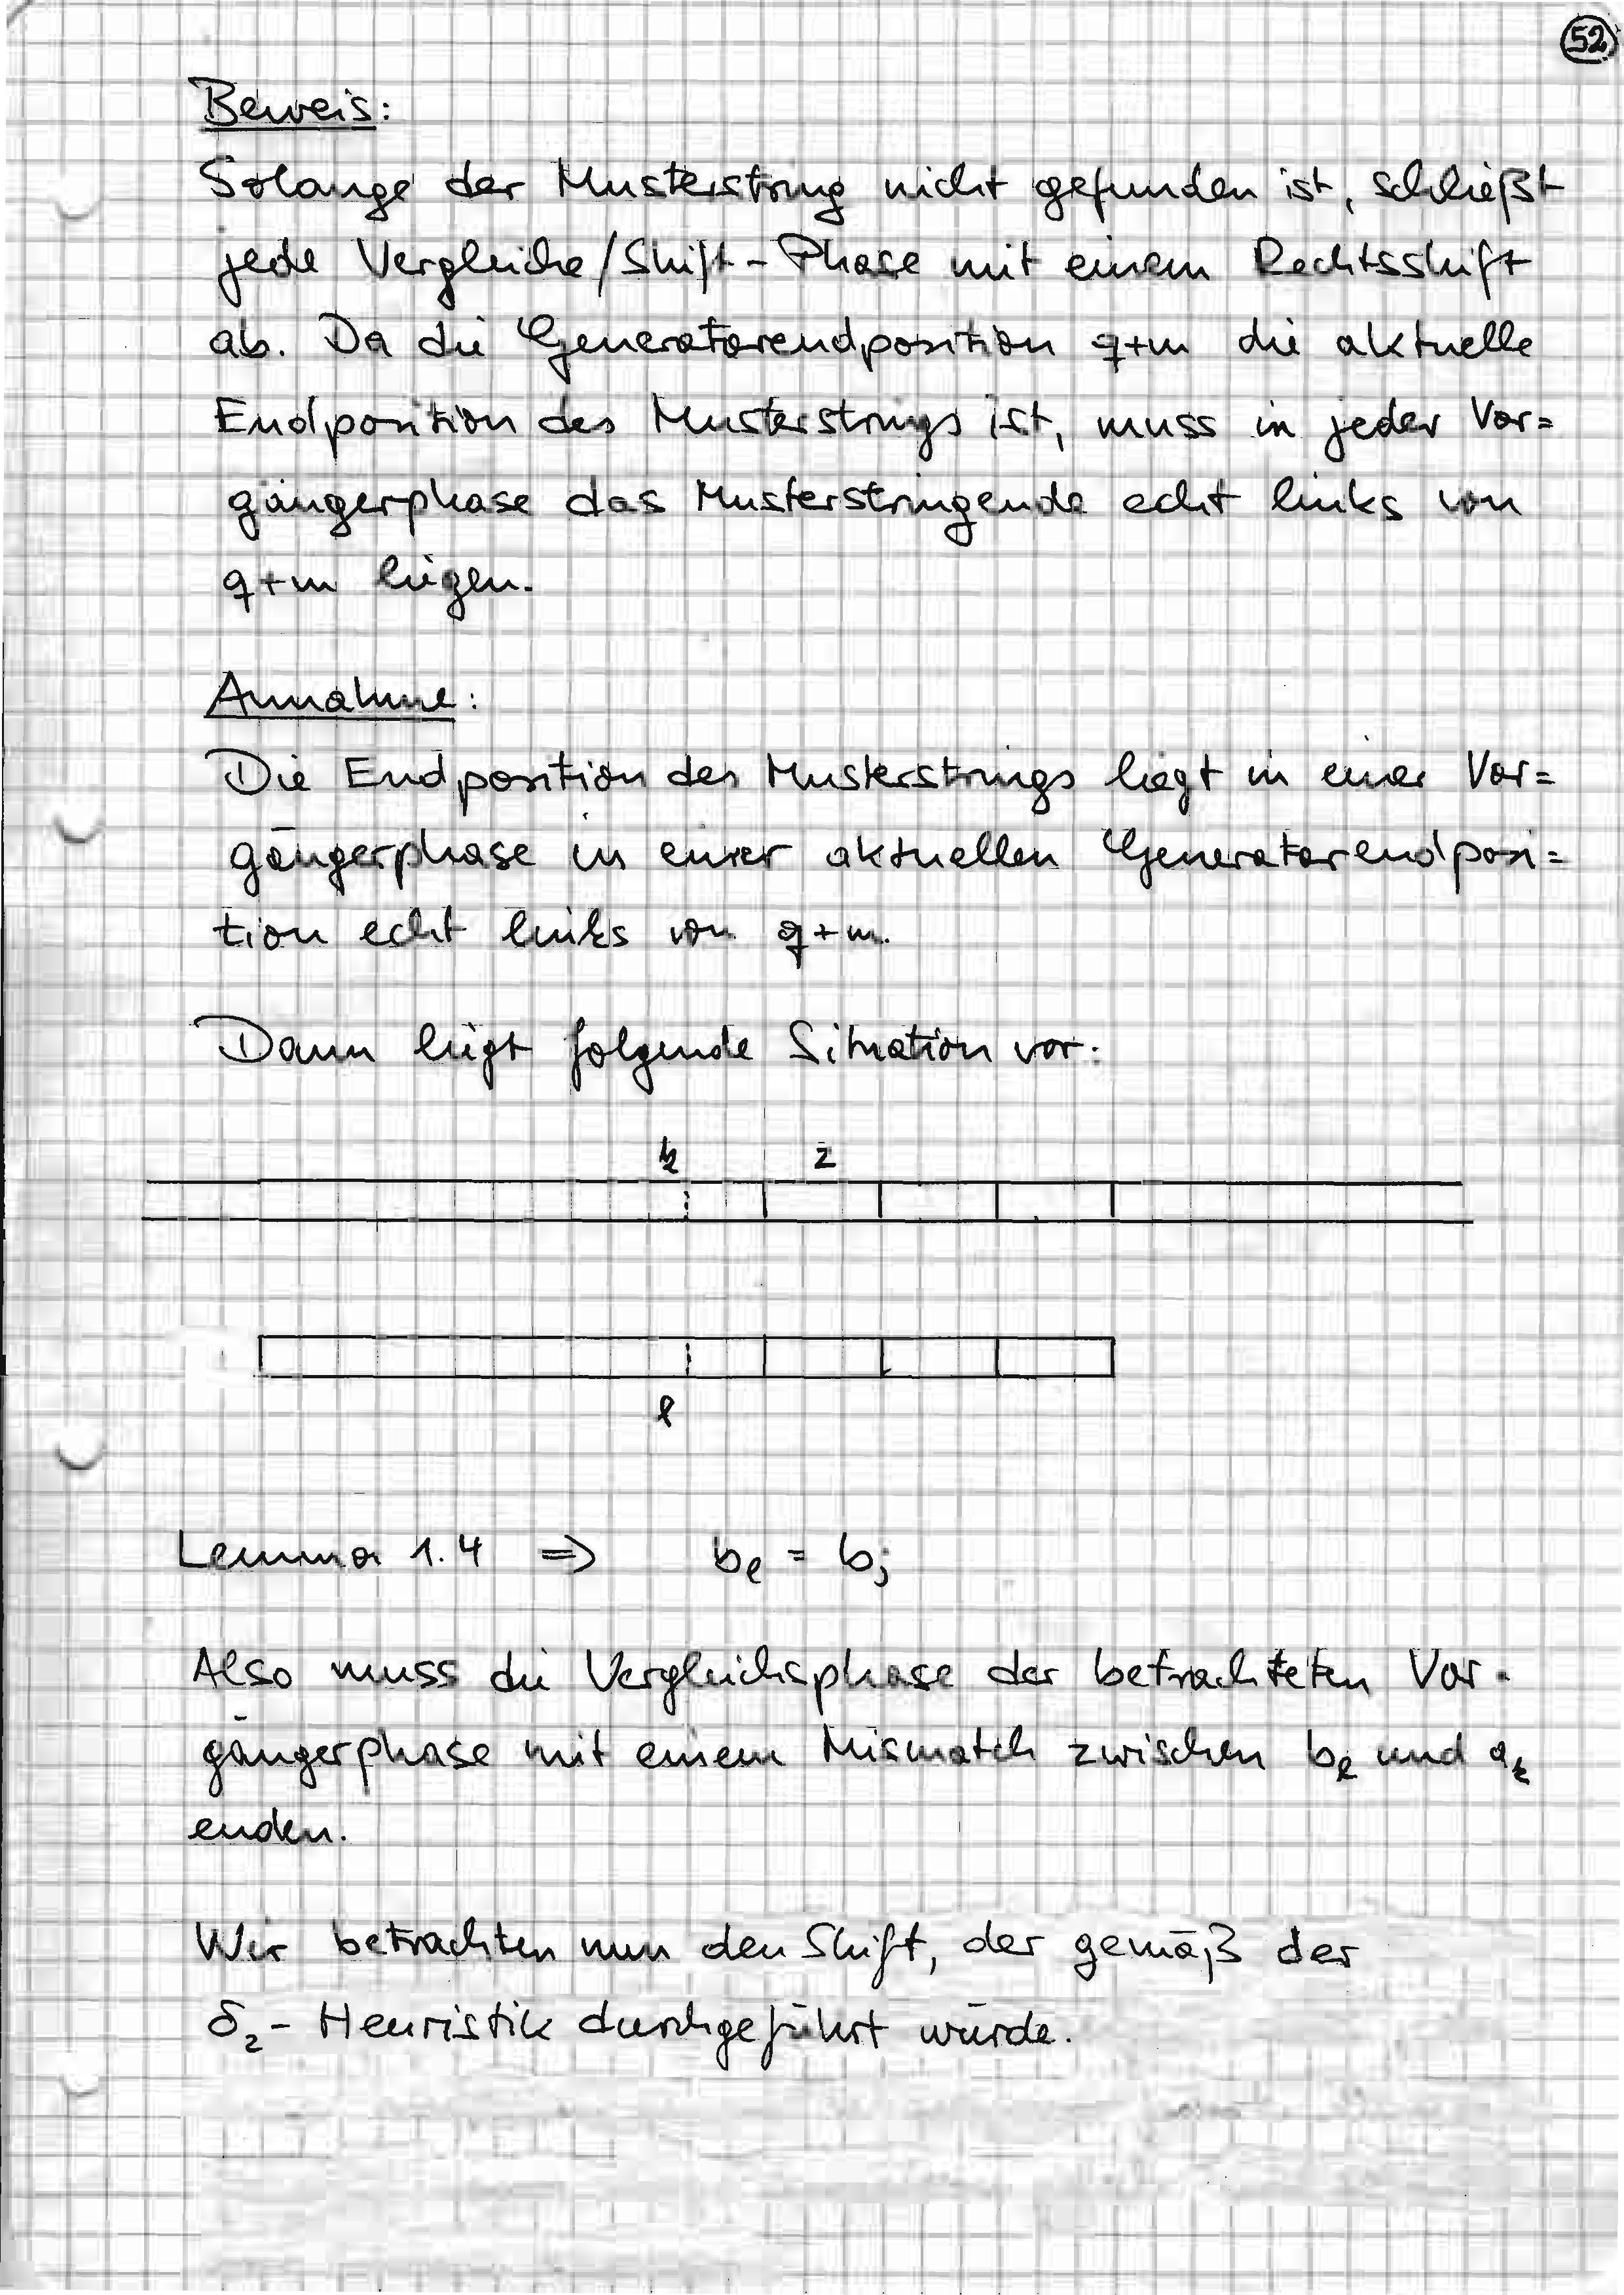 52
Beweis:
Solange der Musterstring nicht gefunden ist, schließt
jede Vergleiche/Shift-Phase mit einem Rechtsshift
ab. Da die Generatorendposition q+m die aktuelle
Endposition des Musterstrings ist, muss in jeder Vor=
gängerphase das Musterstringende echt links von
q+m liegen.
Annahme:
Die Endposition des Musterstrings liegt in einer Vor=
gängerphase in einer aktuellen Generatorendposi=
tion echt links von q+m.
Dann liegt folgende Situation vor:
k z
l
Lemma 1.4 ⇒ bₗ = bⱼ
Also muss die Vergleichsphase der betrachteten Vor-
gängerphase mit einem Mismatch zwischen bₗ und aₖ
enden.
Wir betrachten nun den Shift, der gemäß der
δ₂-Heuristik durchgeführt würde.